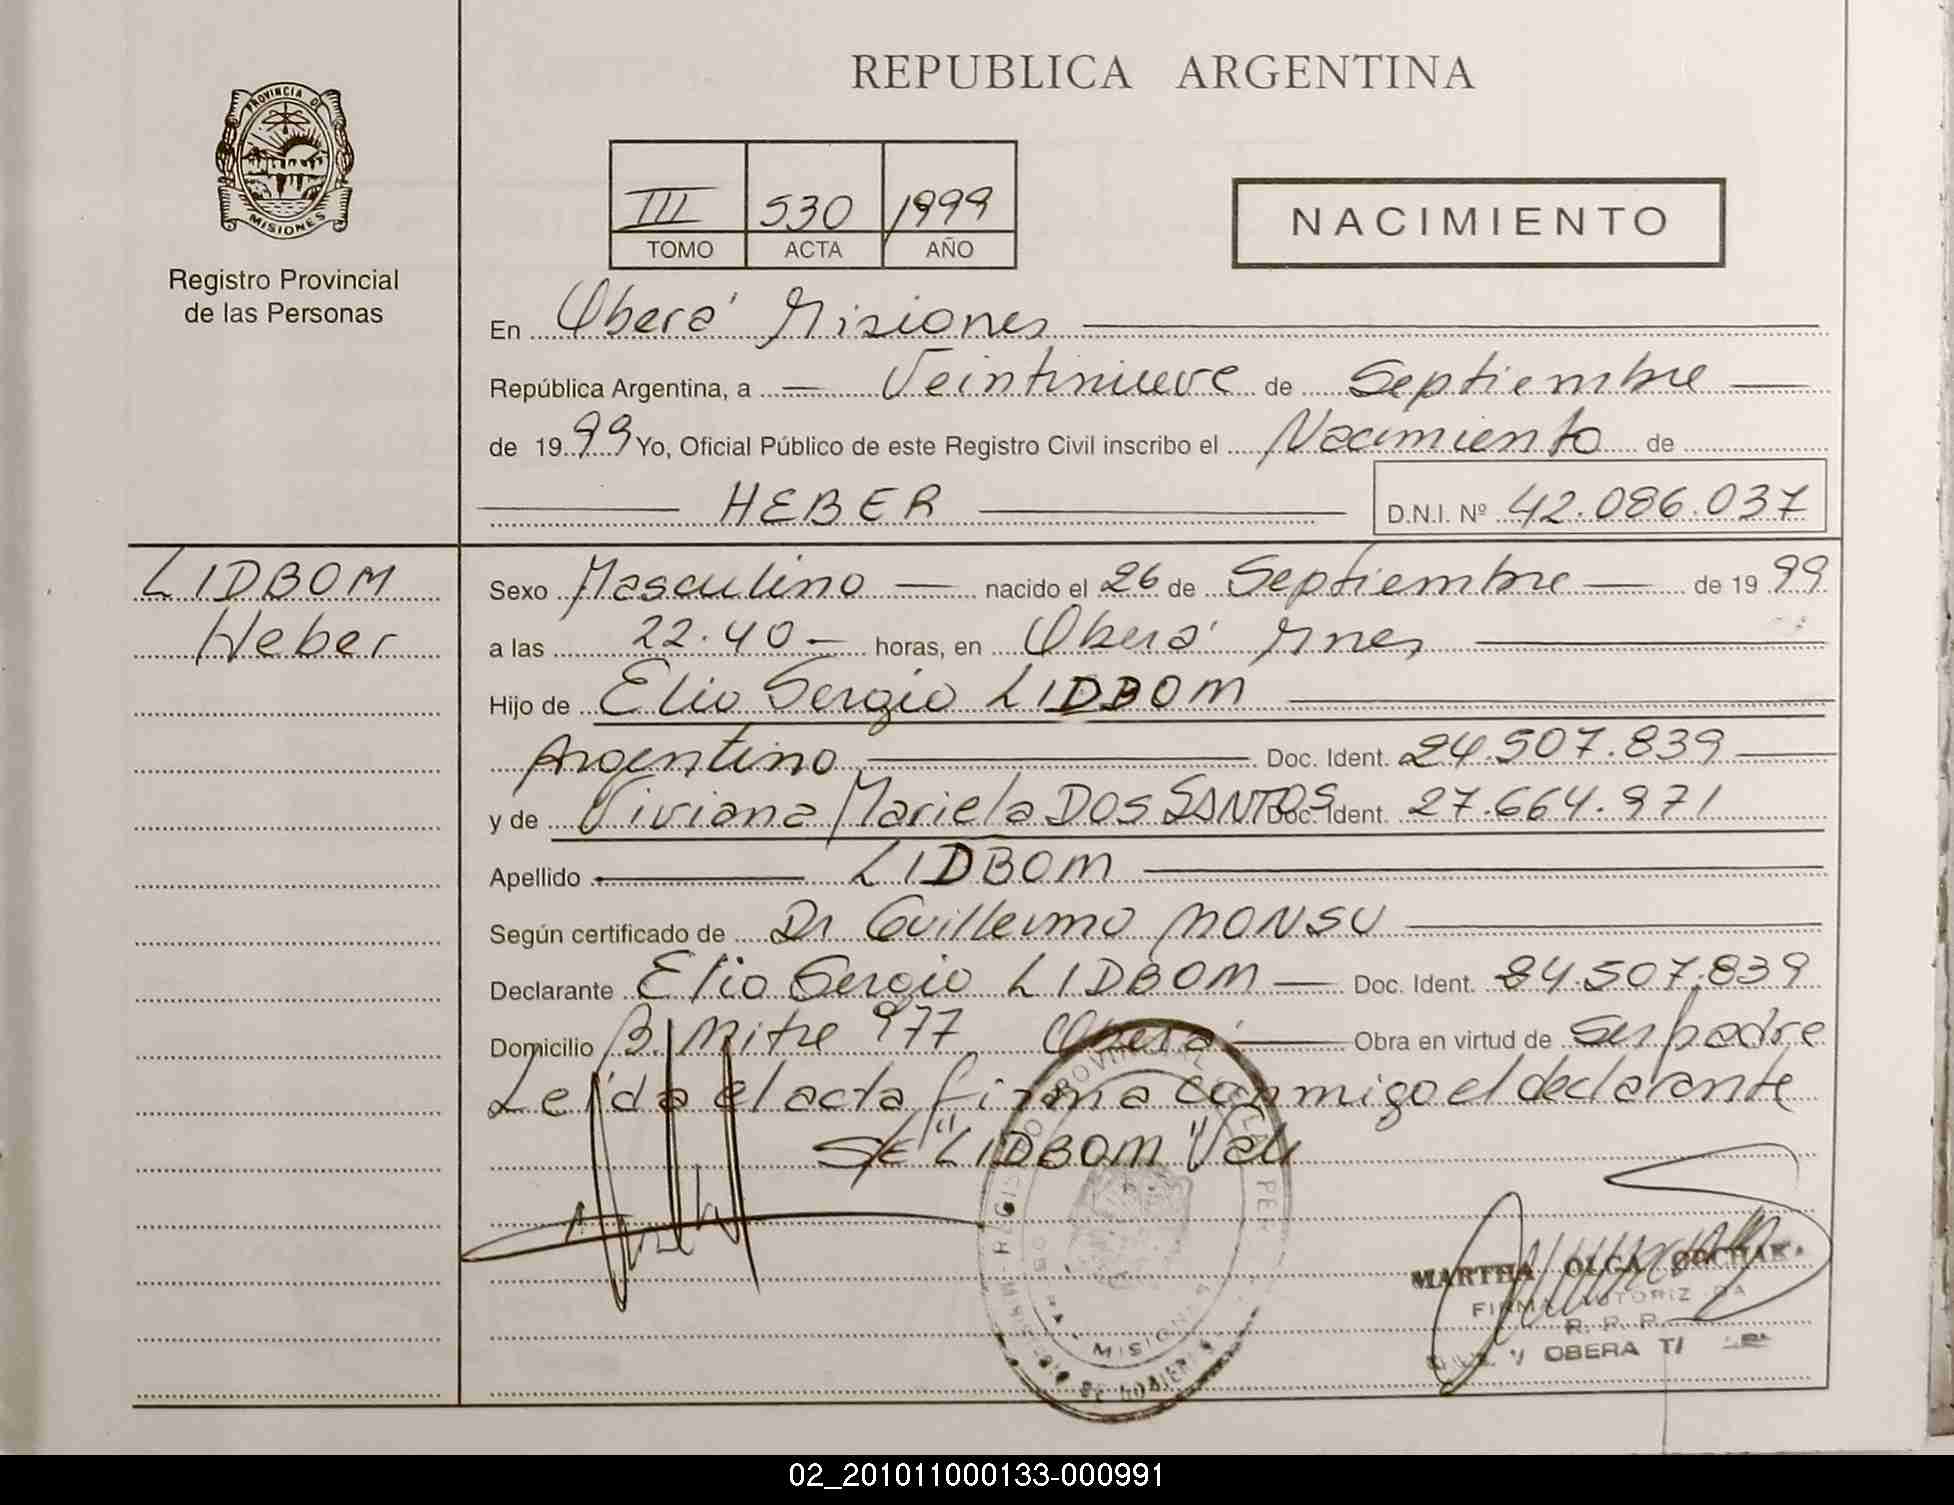 PROVINCIA DE
MISIONES
Registro Provincial
de las Personas
REPUBLICA ARGENTINA
III 530 1999
TOMO ACTA AÑO
NACIMIENTO
En Oberá Misiones
República Argentina, a Veintinueve de Septiembre
de 1999 Yo, Oficial Público de este Registro Civil inscribo el Nacimiento de
HEBER D.N.I. Nº 42.086.037
LIDBOM
Heber
Sexo Masculino nacido el 26 de Septiembre de 1999
a las 22.40 horas, en Oberá Mnes
Hijo de Elio Sergio LIDBOM
Argentino Doc. Ident. 24.507.839
y de Viviana Mariela DOS SANTOS Doc. Ident. 27.664.971
Apellido LIDBOM
Según certificado de Dr Guillermo MONSU
Declarante Elio Sergio LIDBOM Doc. Ident. 24.507.839
Domicilio B. Mitre 977 Oberá Obra en virtud de Ser padre
Leída el acta firma conmigo el declarante
S/E "LIDBOM" Vale
MISIONES
MARTHA OLGA
FIRMA AUTORIZADA
R. R. P.
OBERA
02_201011000133-000991